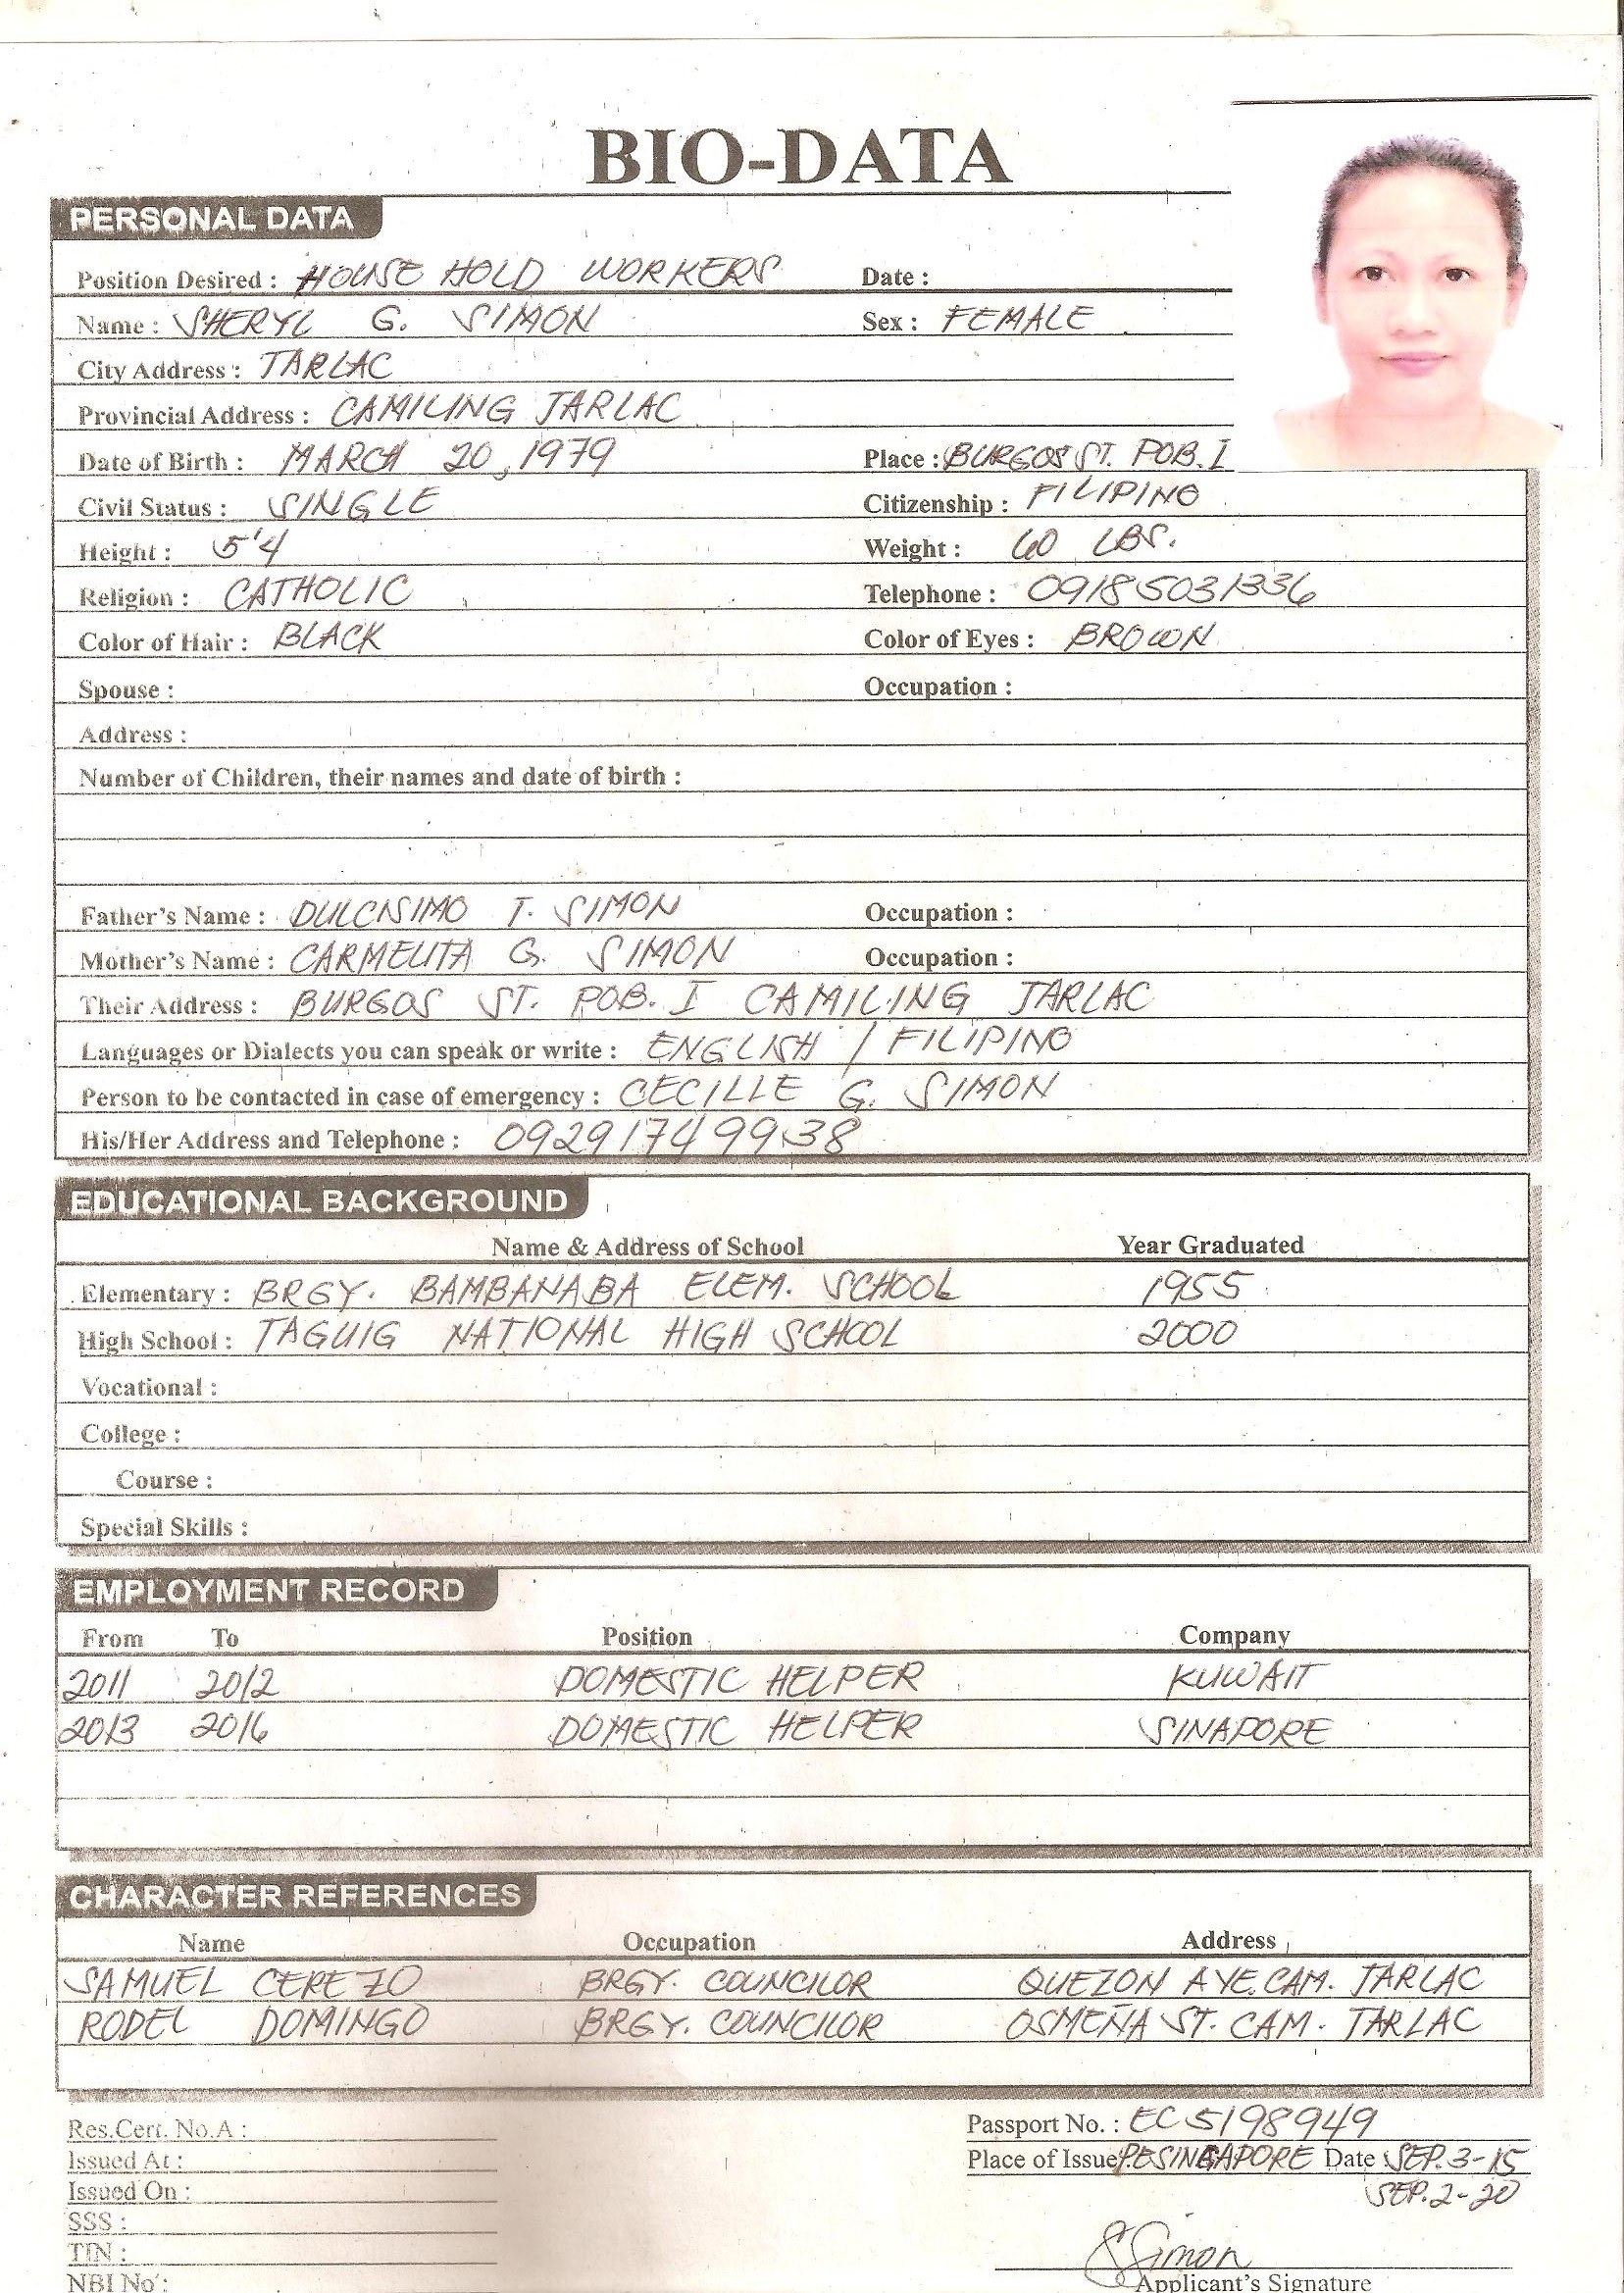 BIO-DATA
PERSONAL DATA
Position Desired : HOUSE HOLD WORKERS Date :
Name : SHERYL G. SIMON Sex : FEMALE
City Address : TARLAC
Provincial Address : CAMILING TARLAC
Date of Birth : MARCH 20, 1979 Place : BURGOS ST. POB. I
Civil Status : SINGLE Citizenship : FILIPINO
Height : 5'4 Weight : 60 LBS.
Religion : CATHOLIC Telephone : 09185031336
Color of Hair : BLACK Color of Eyes : BROWN
Spouse : Occupation :
Address :
Number of Children, their names and date of birth :
Father's Name : DULCISIMO T. SIMON Occupation :
Mother's Name : CARMELITA G. SIMON Occupation :
Their Address : BURGOS ST. POB. I CAMILING TARLAC
Languages or Dialects you can speak or write : ENGLISH / FILIPINO
Person to be contacted in case of emergency : CECILLE G. SIMON
His/Her Address and Telephone : 09291749938
EDUCATIONAL BACKGROUND
Name & Address of School Year Graduated
Elementary : BRGY. BAMBANABA ELEM. SCHOOL 1955
High School : TAGUIG NATIONAL HIGH SCHOOL 2000
Vocational :
College :
Course :
Special Skills :
EMPLOYMENT RECORD
From To Position Company
2011 2012 DOMESTIC HELPER KUWAIT
2013 2016 DOMESTIC HELPER SINAPORE
CHARACTER REFERENCES
Name Occupation Address
SAMUEL CEREZO BRGY. COUNCILOR QUEZON AVE. CAM. TARLAC
RODEL DOMINGO BRGY. COUNCILOR OSMEÑA ST. CAM. TARLAC
Res.Cert. No.A : Passport No. : EC5198949
Issued At : Place of Issue PESINGAPORE Date SEP. 3-15
Issued On : SEP. 2-20
SSS :
TIN : SSimon
NBI No : Applicant's Signature